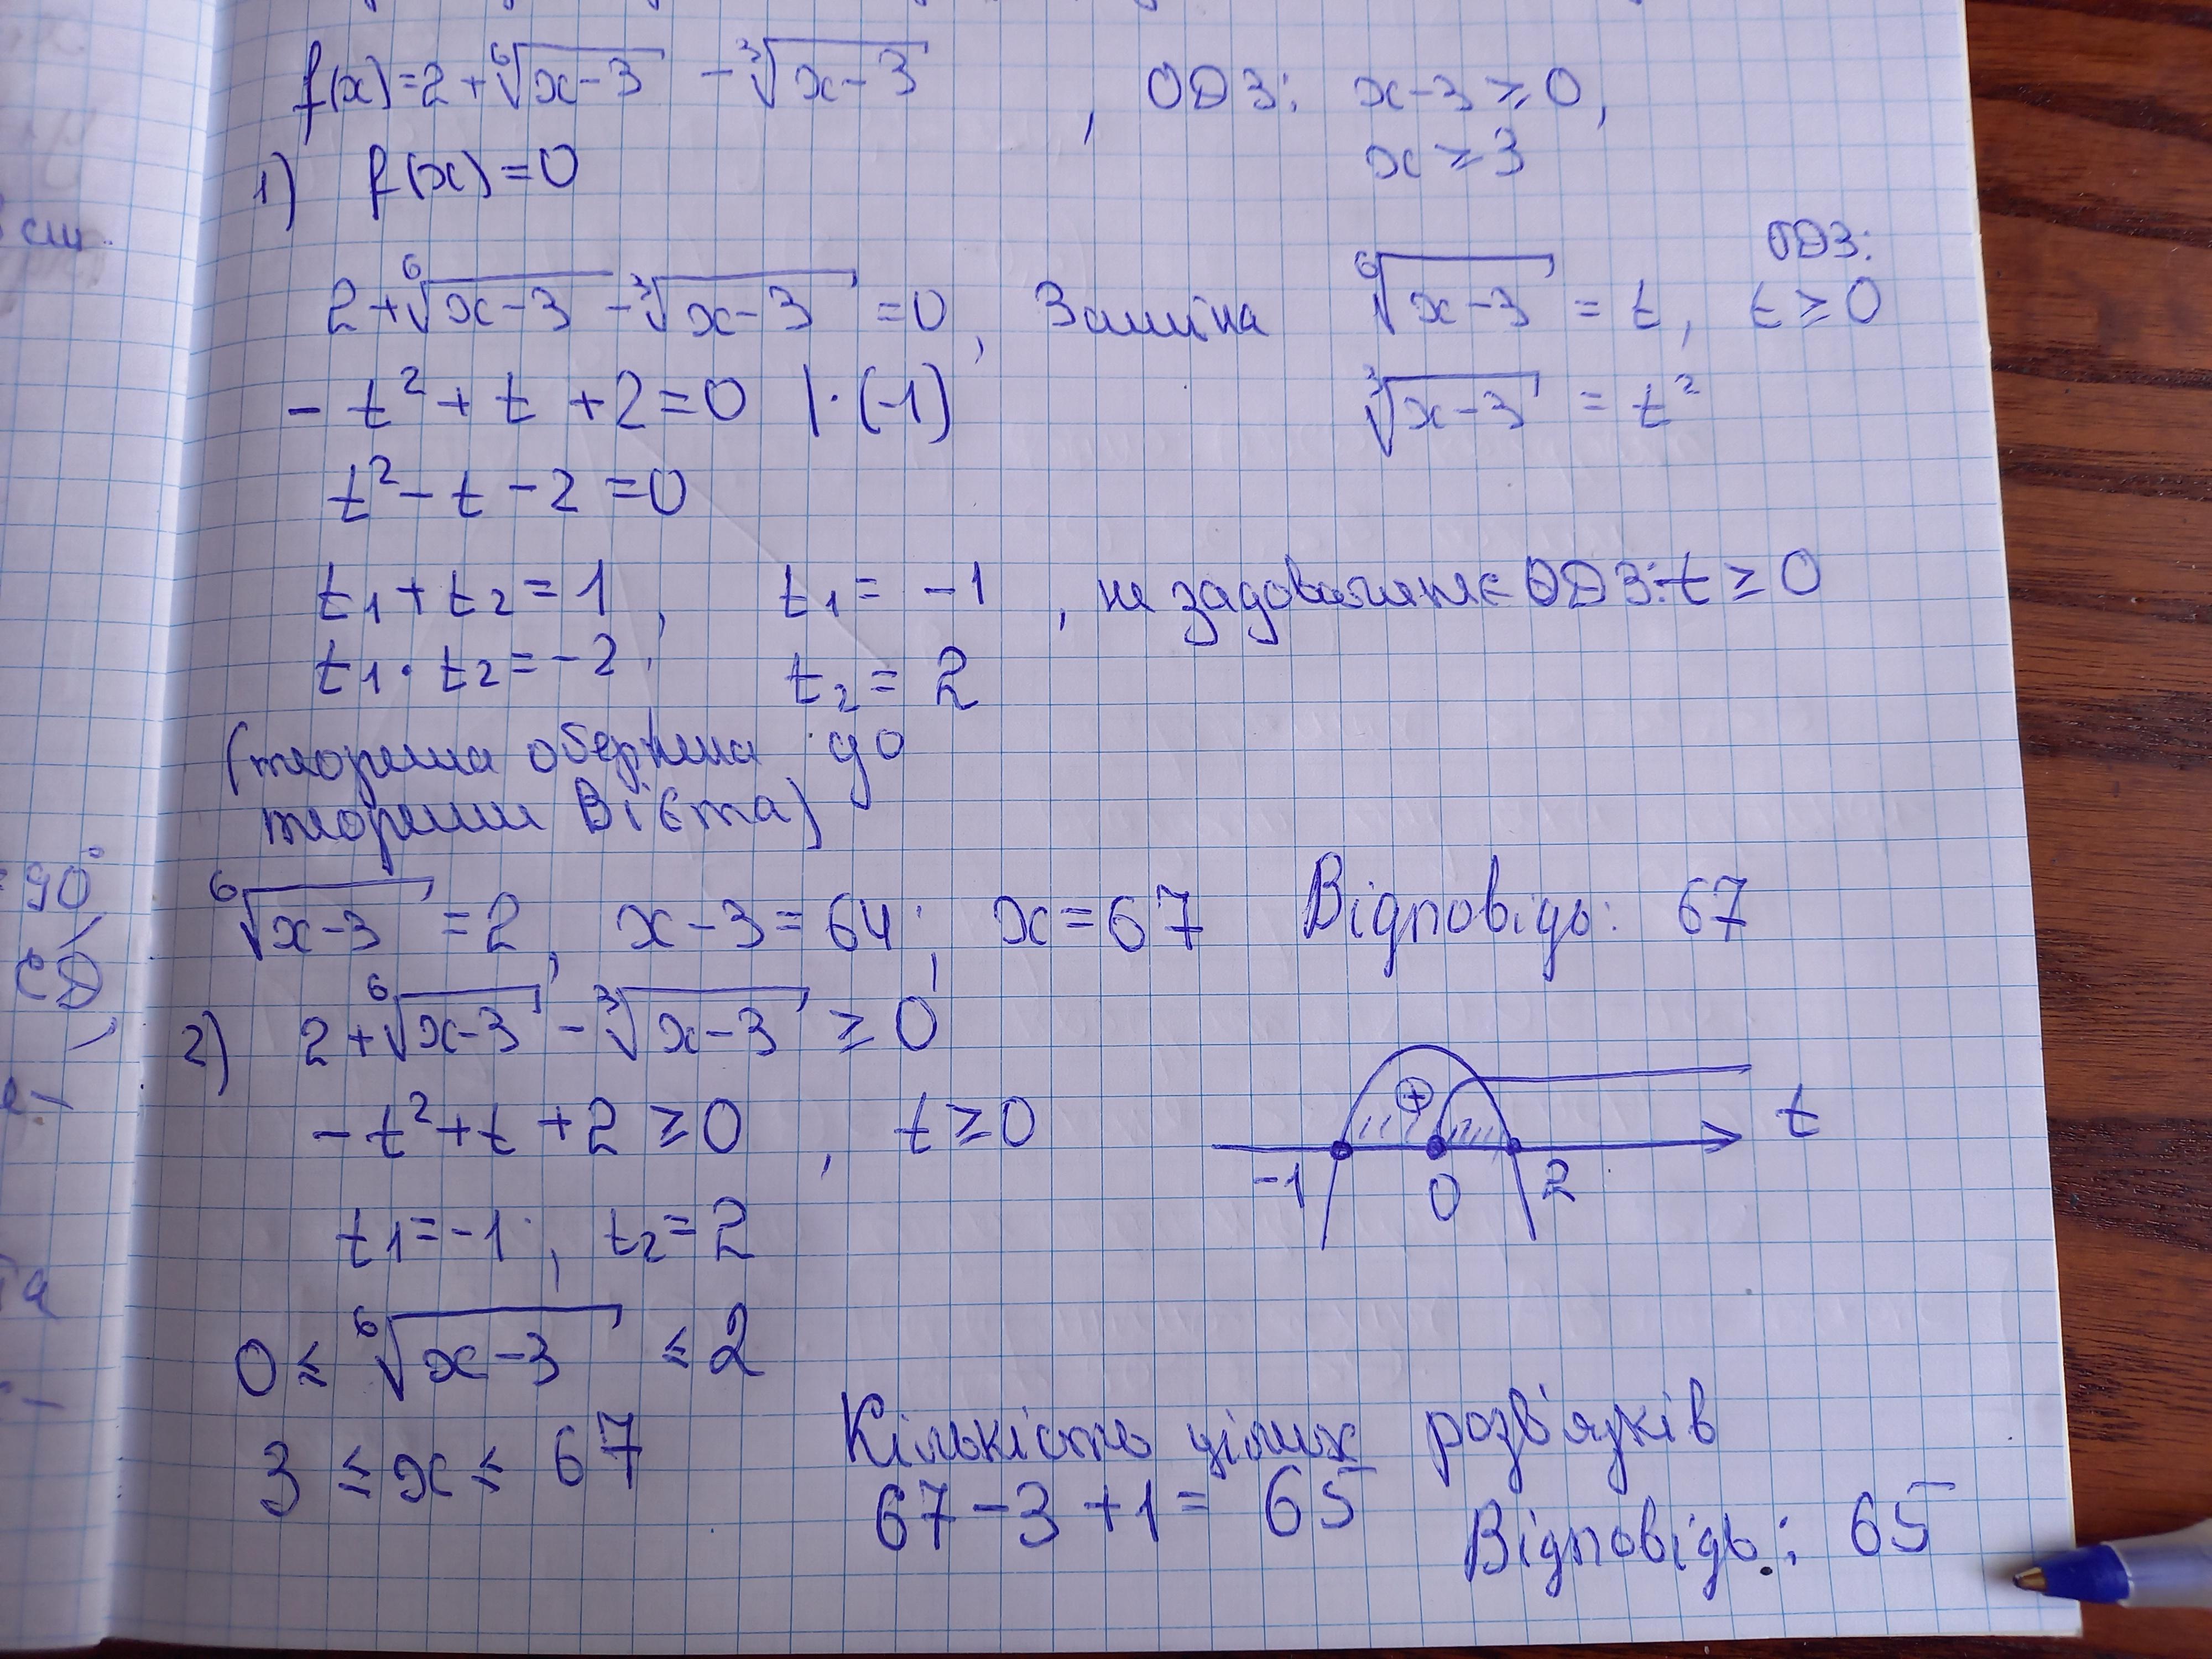 f(x)=2+⁶√(x-3) - ³√(x-3) , ОДЗ: x-3≥0,
x≥3
1) f(x)=0
ОДЗ:
2+⁶√(x-3) - ³√(x-3) =0, Заміна ⁶√(x-3) = t, t≥0
- t²+t+2=0 |·(-1) ³√(x-3) = t²
t²-t-2=0
t₁+t₂=1, t₁= -1, не задовольняє ОДЗ: t≥0
t₁·t₂=-2; t₂= 2
(теорема обернена до
теореми Вієта)
⁶√(x-3) =2, x-3=64; x=67 Відповідь: 67
2) 2+⁶√(x-3) - ³√(x-3) ≥0
-t²+t+2≥0, t≥0
+ t
-1 0 2
t₁=-1; t₂=2
0≤ ⁶√(x-3) ≤2
3≤x≤67
Кількість цілих розв'язків
67-3+1= 65
Відповідь: 65
см.
=90°
CD